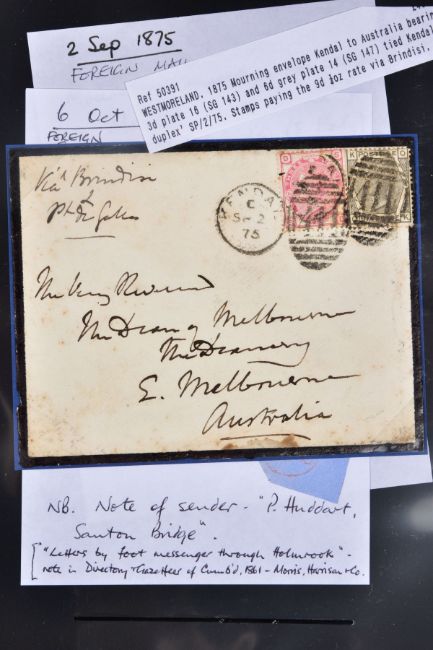 2 Sep 1875
FOREIGN MAIL
6 Oct
FOREIGN
Ref 50391
WESTMORELAND. 1875 Mourning envelope Kendal to Australia bearing
3d plate 16 (SG 143) and 6d grey plate 14 (SG 147) tied Kendal
duplex' SP/2/75. Stamps paying the 9d ½oz rate via Brindisi.
Via Brindisi
&
Pt de Galle
KENDAL
C
SP 2
75
The Very Reverend
The Dean of Melbourne
The Deanery
E. Melbourne
Australia
NB. Note of sender - "P. Huddart,
Santon Bridge".
["Letters by foot messenger through Holmrook" -
note in Directory & Gazetteer of Cumb'd, 1861 - Morris, Harrison & Co.